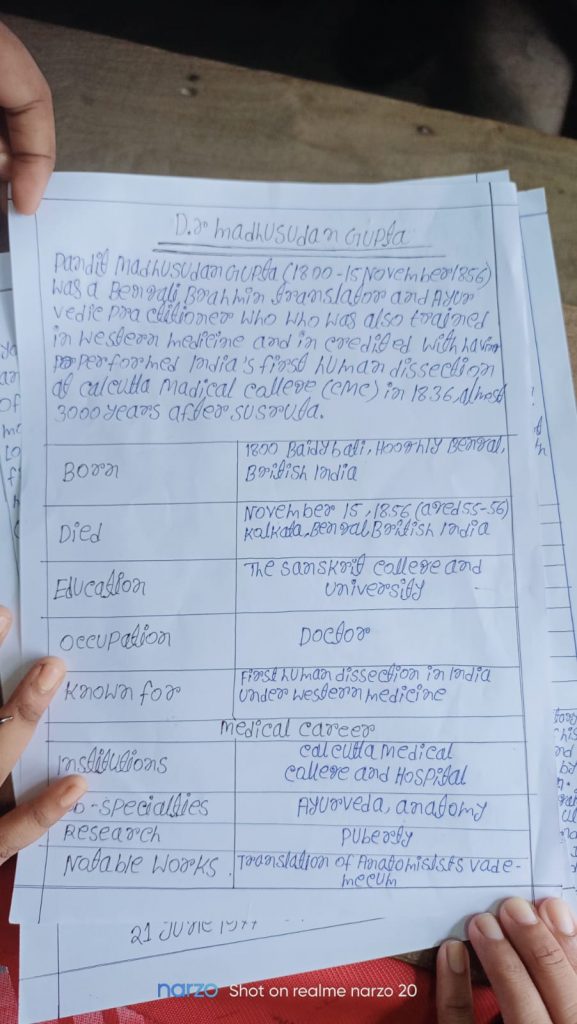 D.r Madhusudan Gupta
Pandit Madhusudan Gupta (1800 -15 November 1856)
was a Bengali Brahmin translator and Ayur
vedic practitioner who who was also trained
in western medicine and in credited with having
performed India's first human dissection
at Calcutta Madical College (CMC) in 1836, almost
3000 years after Susruta.
Born
1800 Baidybati, Hooghly Bengal,
British India
Died
November 15, 1856 (aged 55-56)
Kolkata, Bengal, British India
Education
The Sanskrit College and
University
Occupation
Doctor
Known for
First human dissection in India
under western medicine
Medical career
Institutions
Calcutta Medical
College and Hospital
-specialties
Ayurveda, anatomy
Research
Puberty
Notable works
Translation of Anatomists vade-
mecum
21 June
narzo Shot on realme narzo 20